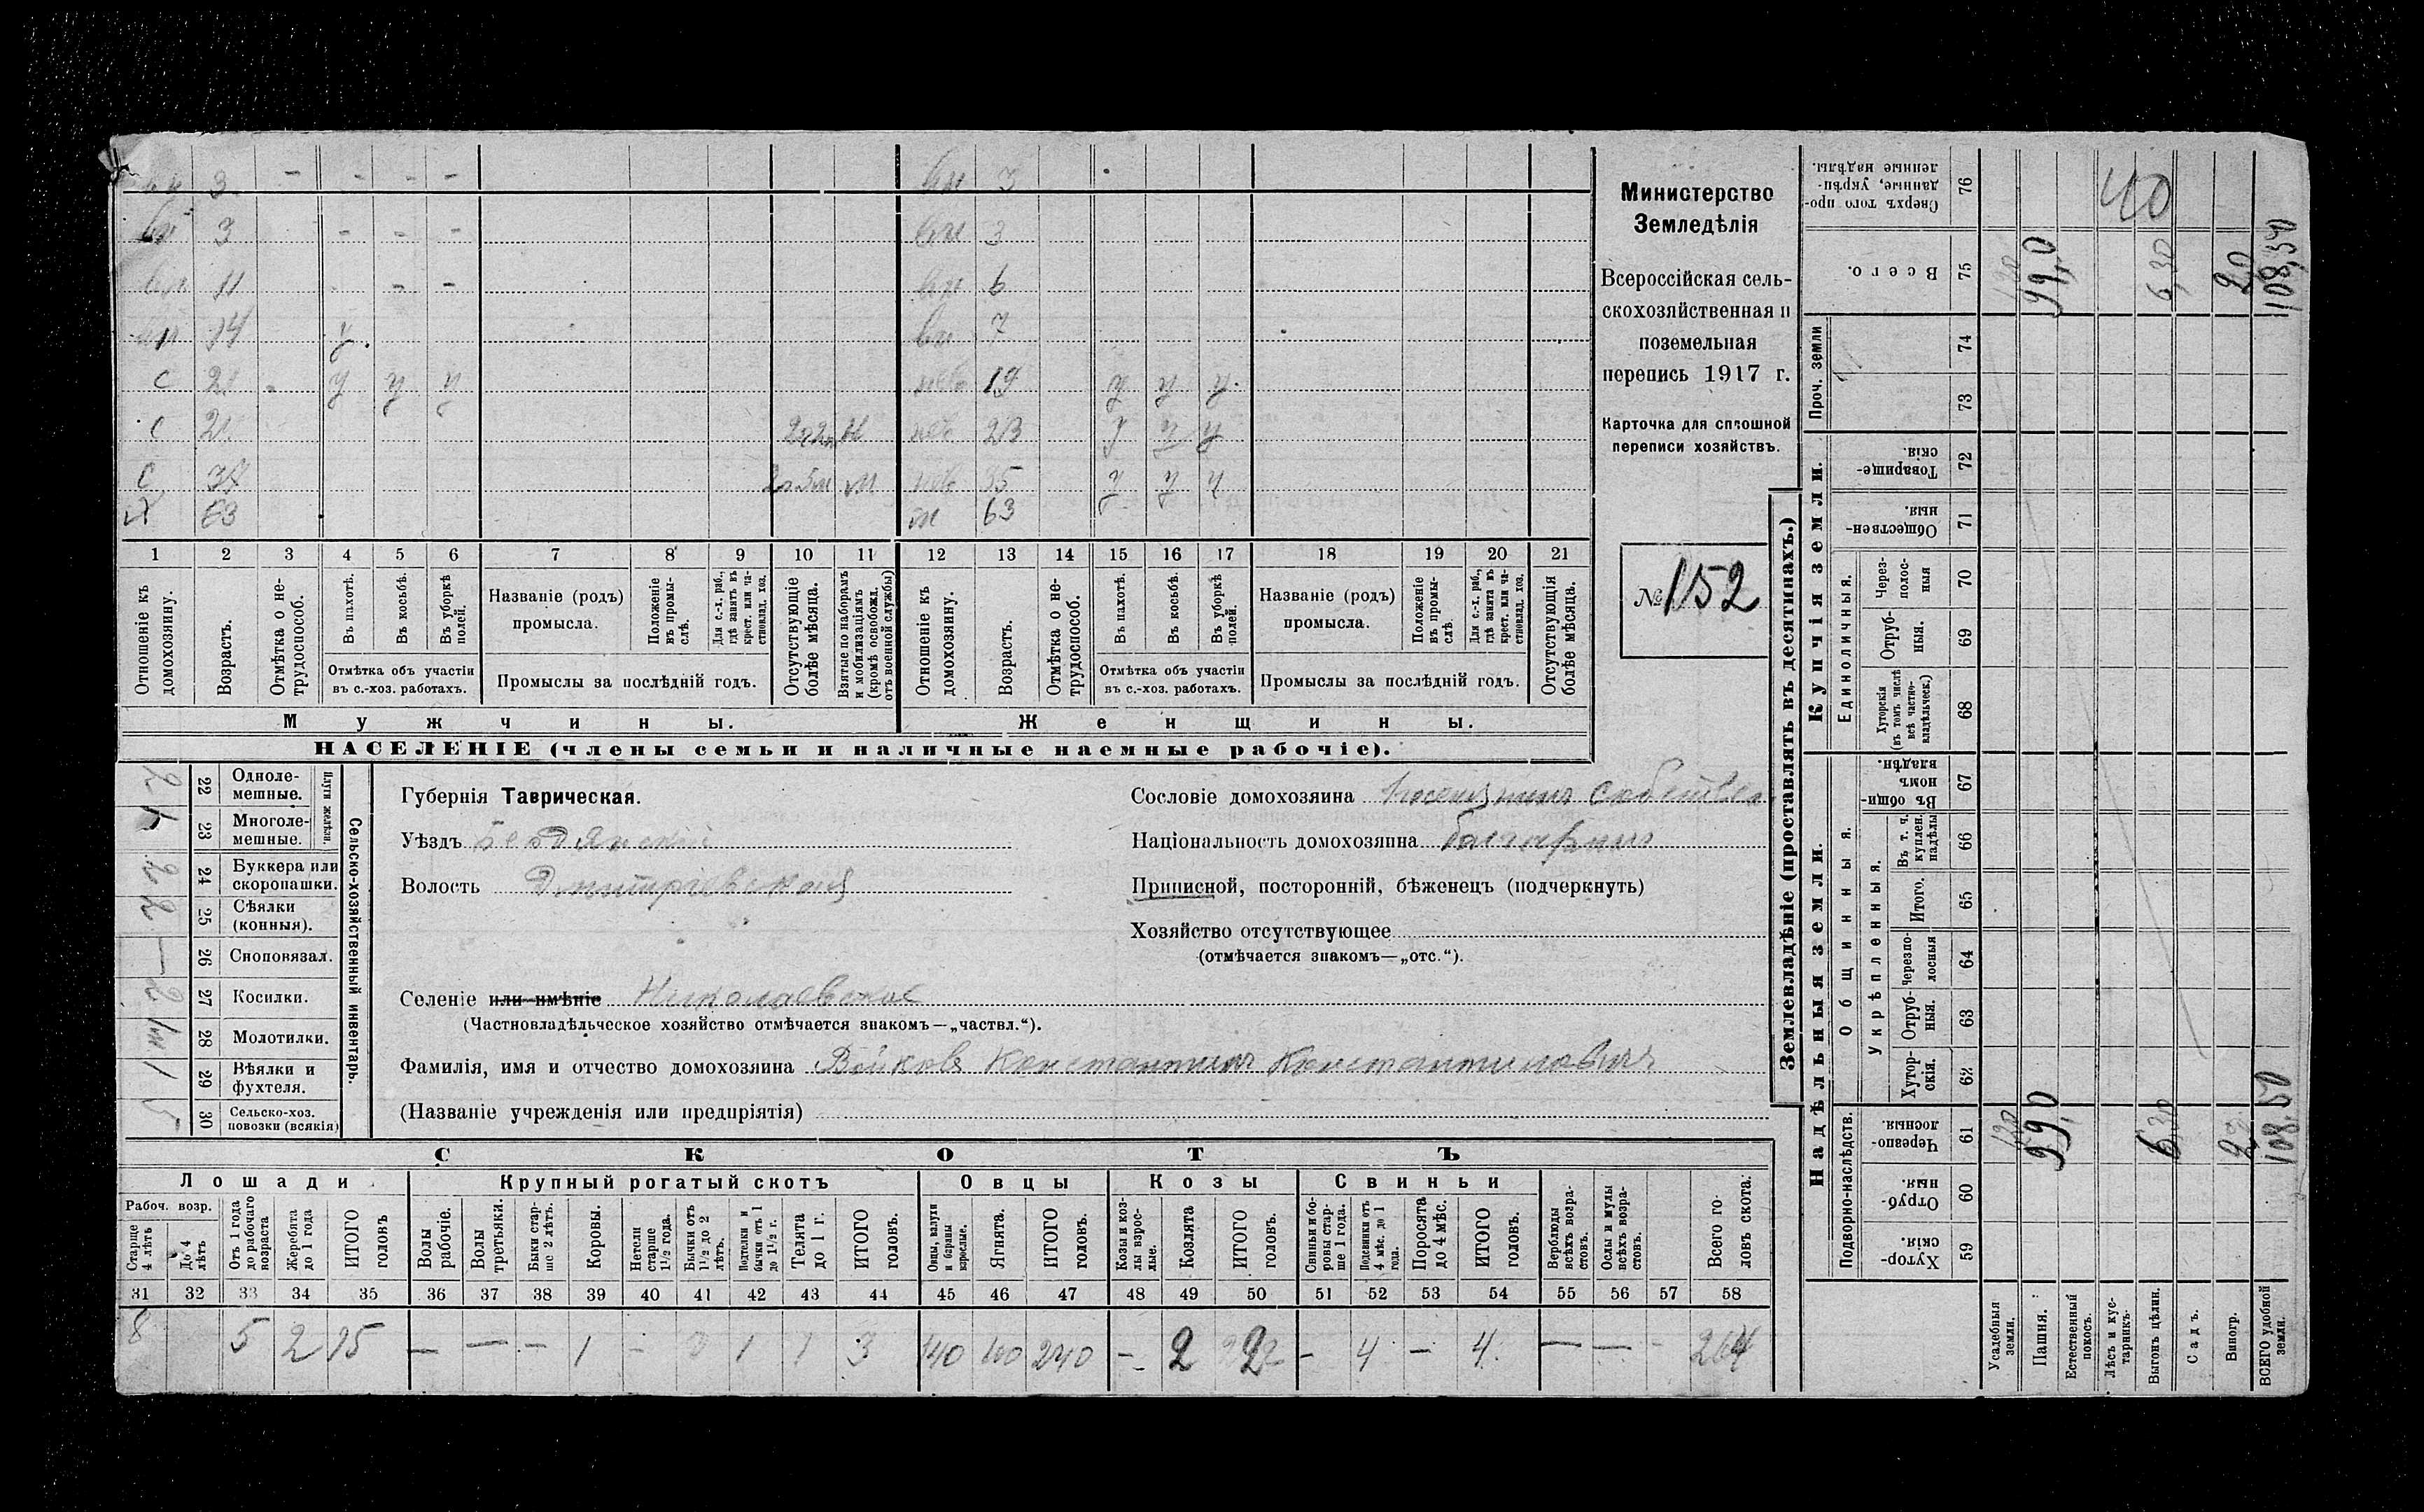 вн 3 - - - - вн 3
вн 3 - - - вн 3
вн 11 - - вн 6
вн 14 у. вн 7
с у у у нев 19 у у у.
с 2г2м М нев 23 у у у
с 2г5м М нев 35 у у у
Х 63 ж 63
1 2 3 4 5 6 7 8 9 10 11 12 13 14 15 16 17 18 19 20 21
Отношеніе къ домохозяину.
Возрастъ.
Отмѣтка о не-трудоспособ.
Въ пахотѣ.
Въ косьбѣ.
Въ уборкѣ полей.
Отмѣтка объ участіи
въ с.-хоз. работахъ.
Названіе (родъ)
промысла.
Положеніе въ промы-слѣ.
Для с.-х. раб., гдѣ занятъ въ крест. или ча-стновлад. хоз.
Промыслы за послѣдній годъ.
Отсутствующіе болѣе мѣсяца.
Взятые по наборамъ и мобилизаціямъ (кромѣ освобожд. отъ военной службы)
Отношеніе къ домохозяину.
Возрастъ.
Отмѣтка о не-трудоспособ.
Въ пахотѣ.
Въ косьбѣ.
Въ уборкѣ полей.
Отмѣтка объ участіи
въ с.-хоз. работахъ.
Названіе (родъ)
промысла.
Положеніе въ промы-слѣ.
Для с.-х. раб., гдѣ занята въ крест. или ча-стновлад. хоз.
Промыслы за послѣдній годъ.
Отсутствующія болѣе мѣсяца.
Мужчины. Женщины.
НАСЕЛЕНІЕ (члены семьи и наличные наемные рабочіе).
Министерство
Земледѣлія
Всероссійская сель-
скохозяйственная и
поземельная
перепись 1917 г.
Карточка для сплошной
переписи хозяйствъ.
№ 152
22 Одноле-мешные.
23 Многоле-мешные.
Плуги желѣзн.
24 Буккера или скоропашки.
25 Сѣялки (конныя).
26 Сноповязал.
27 Косилки.
28 Молотилки.
29 Вѣялки и фухтеля.
30 Сельско-хоз. повозки (всякія)
Сельско-хозяйственный инвентарь.
Губернія Таврическая.
Уѣздъ Бердянскій
Волость Дмитріевская
Селеніе или имѣніе Николаевское
(Частновладѣльческое хозяйство отмѣчается знакомъ—„частвл.“).
Фамилія, имя и отчество домохозяина Войковъ Константинъ Константиновичъ
(Названіе учрежденія или предпріятія)
Сословіе домохозяина Поселянинъ собствен.
Національность домохозяина болгаринъ
Приписной, посторонній, бѣженецъ (подчеркнуть)
Хозяйство отсутствующее
(отмѣчается знакомъ—„отс.“).
СКОТЪ
Лошади Крупный рогатый скотъ Овцы Козы Свиньи
Рабоч. возр.
Старше 4 лѣтъ
До 4 лѣтъ
Отъ 1 года до рабочаго возраста
Жеребята до 1 года
ИТОГО головъ
Волы рабочіе.
Волы третьяки.
Быки стар-ше 2 лѣтъ.
Коровы.
Нетели старше 1½ года.
Бычки отъ 1½ до 2 лѣтъ.
Подтелки и бычки отъ 1 до 1½ г.
Телята до 1 г.
ИТОГО головъ.
Овцы, валухи и бараны взрослые.
Ягнята.
ИТОГО головъ.
Козы и коз-лы взрос-лые.
Козлята
ИТОГО головъ.
Свиньи и бо-ровы стар-ше 1 года.
Подсвинки отъ 4 мѣс. до 1 года.
Поросята до 4 мѣс.
ИТОГО головъ.
Верблюды всѣхъ возра-стовъ.
Ослы и мулы всѣхъ возра-стовъ.
Всего го-ловъ скота.
31 32 33 34 35 36 37 38 39 40 41 42 43 44 45 46 47 48 49 50 51 52 53 54 55 56 57 58
8 5 2 15 — — — 1 - 1 1 3 140 100 240 - 2 2 - 4 - 4. — — - 264
Землевладѣніе (проставлять въ десятинахъ.)
Купчія земли.
Надѣльныя земли.
Сверхъ того про-данные, укрѣп-ленные надѣлы. 76
Всего. 75
Проч. земли 74 73
Товарище-скія. 72
Обществен-ныя. 71
Единоличныя.
Через-полос-ныя 70
Отруб-ныя. 69
Хуторскія (въ томъ числѣ всѣ частно-владѣльческ.) 68
Общинныя.
Въ общи-номъ владѣн. 67
Укрѣпленныя.
Въ т. ч. куплен. надѣлы 66
Итого. 65
Черезпо-лосныя 64
Отруб-ныя. 63
Хутор-скія. 62
Подворно-наслѣдств.
Черезпо-лосныя. 61
Отруб-ныя. 60
Хутор-скія. 59
Усадебныя земли.
Пашня. 99,0 99,0
Естественный покосъ.
Лѣсъ и кус-тарникъ. 40
Выгонъ цѣлин. 6,30 6,30
Садъ.
Виногр. 2,0
ВСЕГО удобной земли. 108,50 108,50